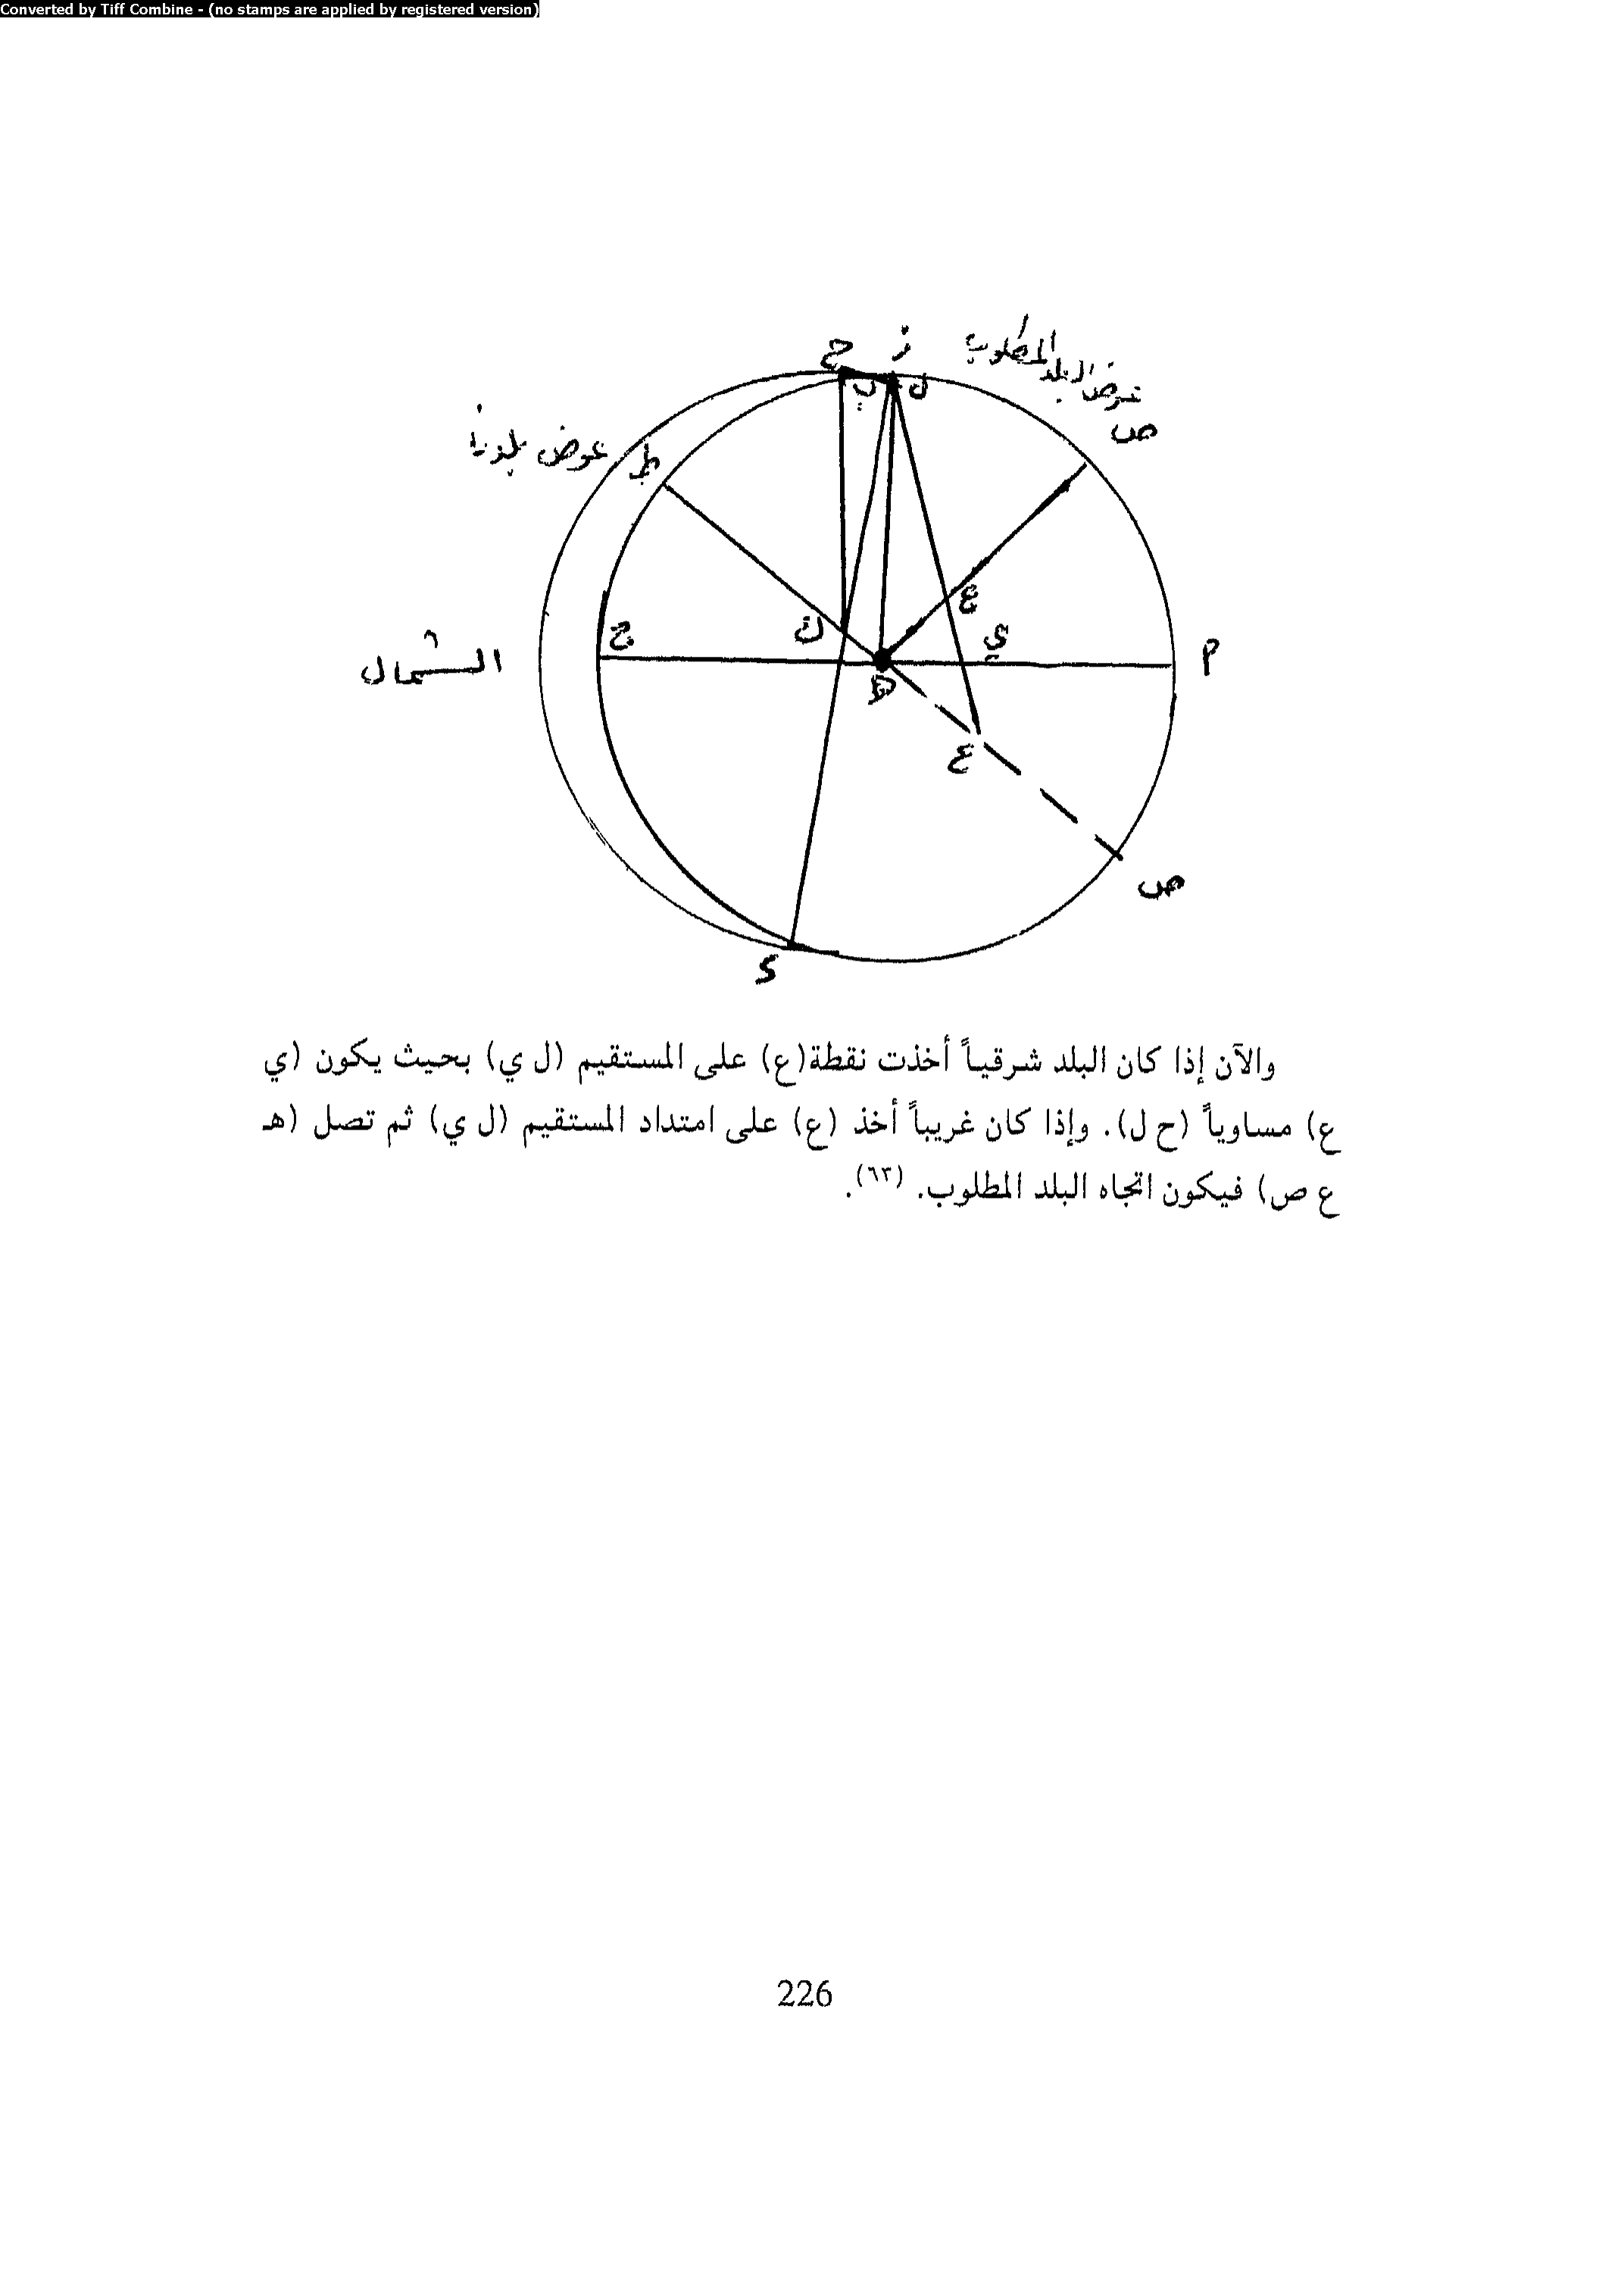 Converted by Tiff Combine - (no stamps are applied by registered version)
ح ز عرض البلد المطلوب
ب ل
ص
ط عرض بلدنا
ع
ك ي
ج
الشمال م
هـ
ع
ص
د
والآن إذا كان البلد شرقياً أخذت نقطة(ع) على المستقيم (ل ي) بحيث يكون (ي
ع) مساوياً (ح ل). وإذا كان غريباً أخذ (ع) على امتداد المستقيم (ل ي) ثم تصل (هـ
ع ص) فيكون اتجاه البلد المطلوب. (٦٣).
226